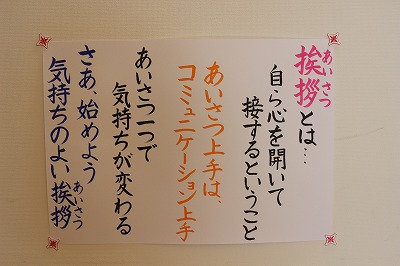 挨拶とは…
あいさつ
自ら心を開いて
接するということ
あいさつ上手は、
コミュニケーション上手
あいさつ一つで
気持ちが変わる
さあ、始めよう
気持ちのよい挨拶
あいさつ